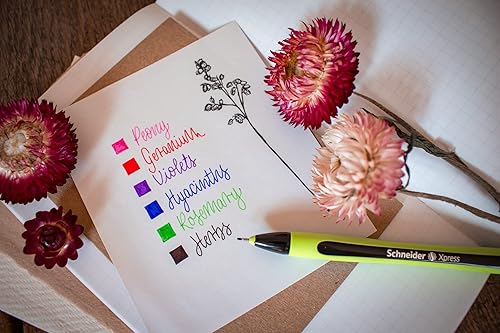 Peony
Geranium
Violets
Hyacinths
Rosemary
Herbs
Schneider Xpress